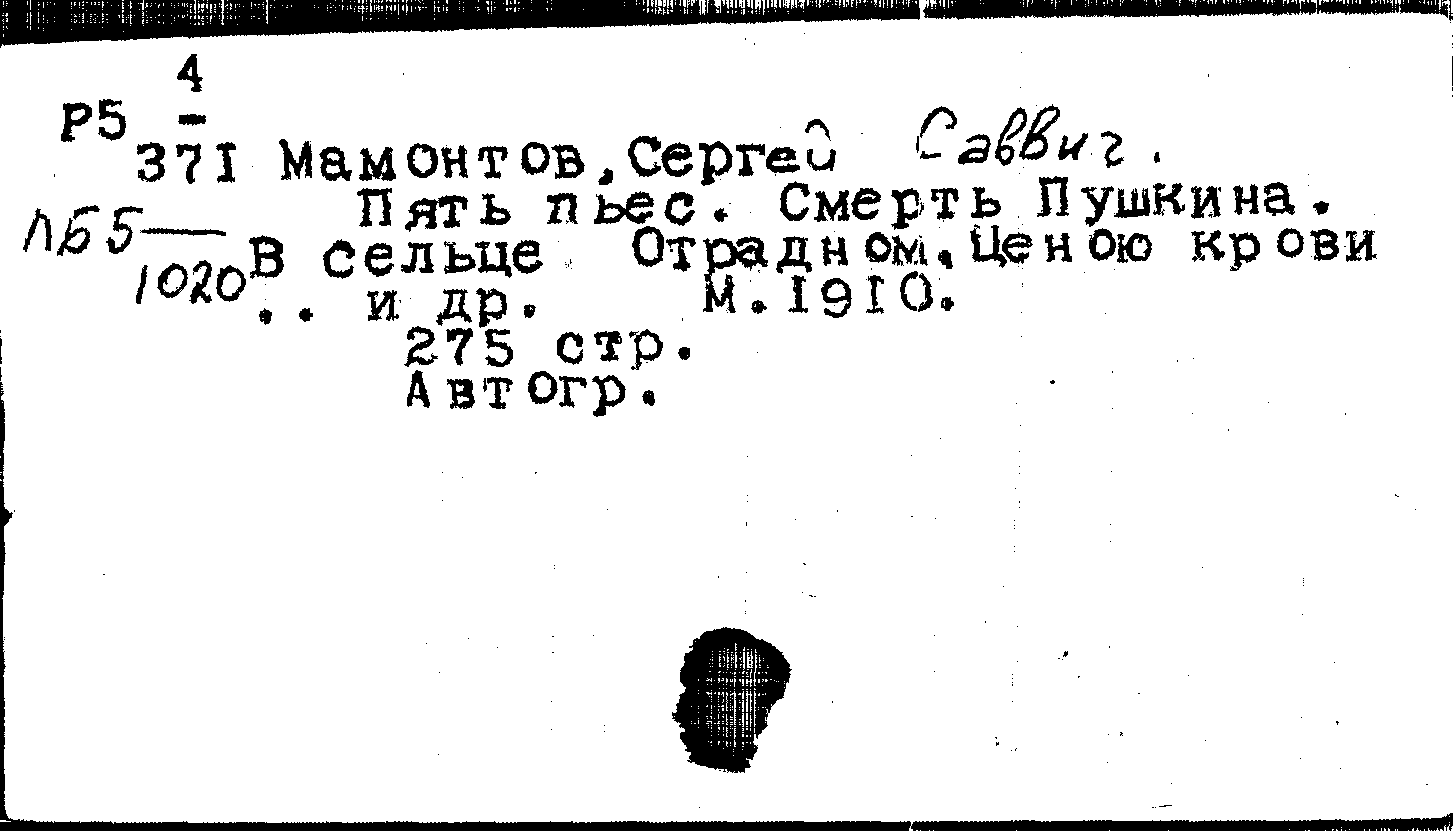 4
Р5 -
371 Мамонтов,Сергей Саввич.
Пять пьес. Смерть Пушкина.
ЛБ5—
1020
В сельце Отрадном.Ценою крови
.. и др. М.1910.
275 стр.
Автогр.